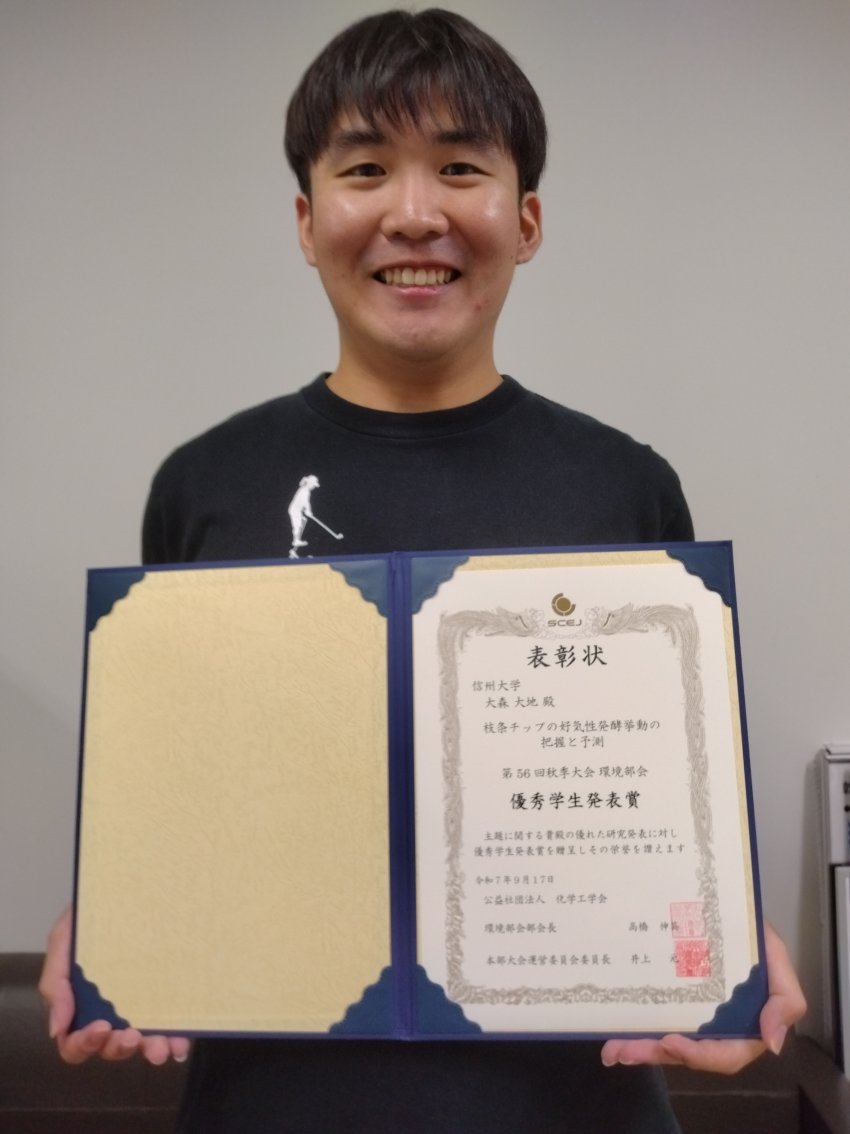 SCEJ
表彰状
信州大学
大森 大地 殿
枝条チップの好気性発酵挙動の
把握と予測
第 56 回秋季大会 環境部会
優秀学生発表賞
主題に関する貴殿の優れた研究発表に対し
優秀学生発表賞を贈呈しその栄誉を讃えます
令和7年9月17日
公益社団法人 化学工学会
環境部会部会長 高橋 伸英
本部大会運営委員会委員長 井上 元